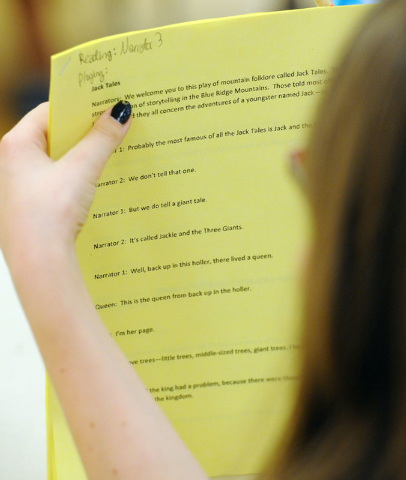 Reading: Narrator 3
Playing:
Jack Tales
Narrator: We welcome you to this play of mountain folklore called Jack Tales.
of storytelling in the Blue Ridge Mountains. Those told most
they all concern the adventures of a youngster named Jack—
1: Probably the most famous of all the Jack Tales is Jack and the
Narrator 2: We don't tell that one.
Narrator 1: But we do tell a giant tale.
Narrator 2: It's called Jackie and the Three Giants.
Narrator 1: Well, back up in this holler, there lived a queen.
Queen: This is the queen from back up in the holler.
I'm her page.
trees—little trees, middle-sized trees, giant trees. I
the king had a problem, because there were
the kingdom.